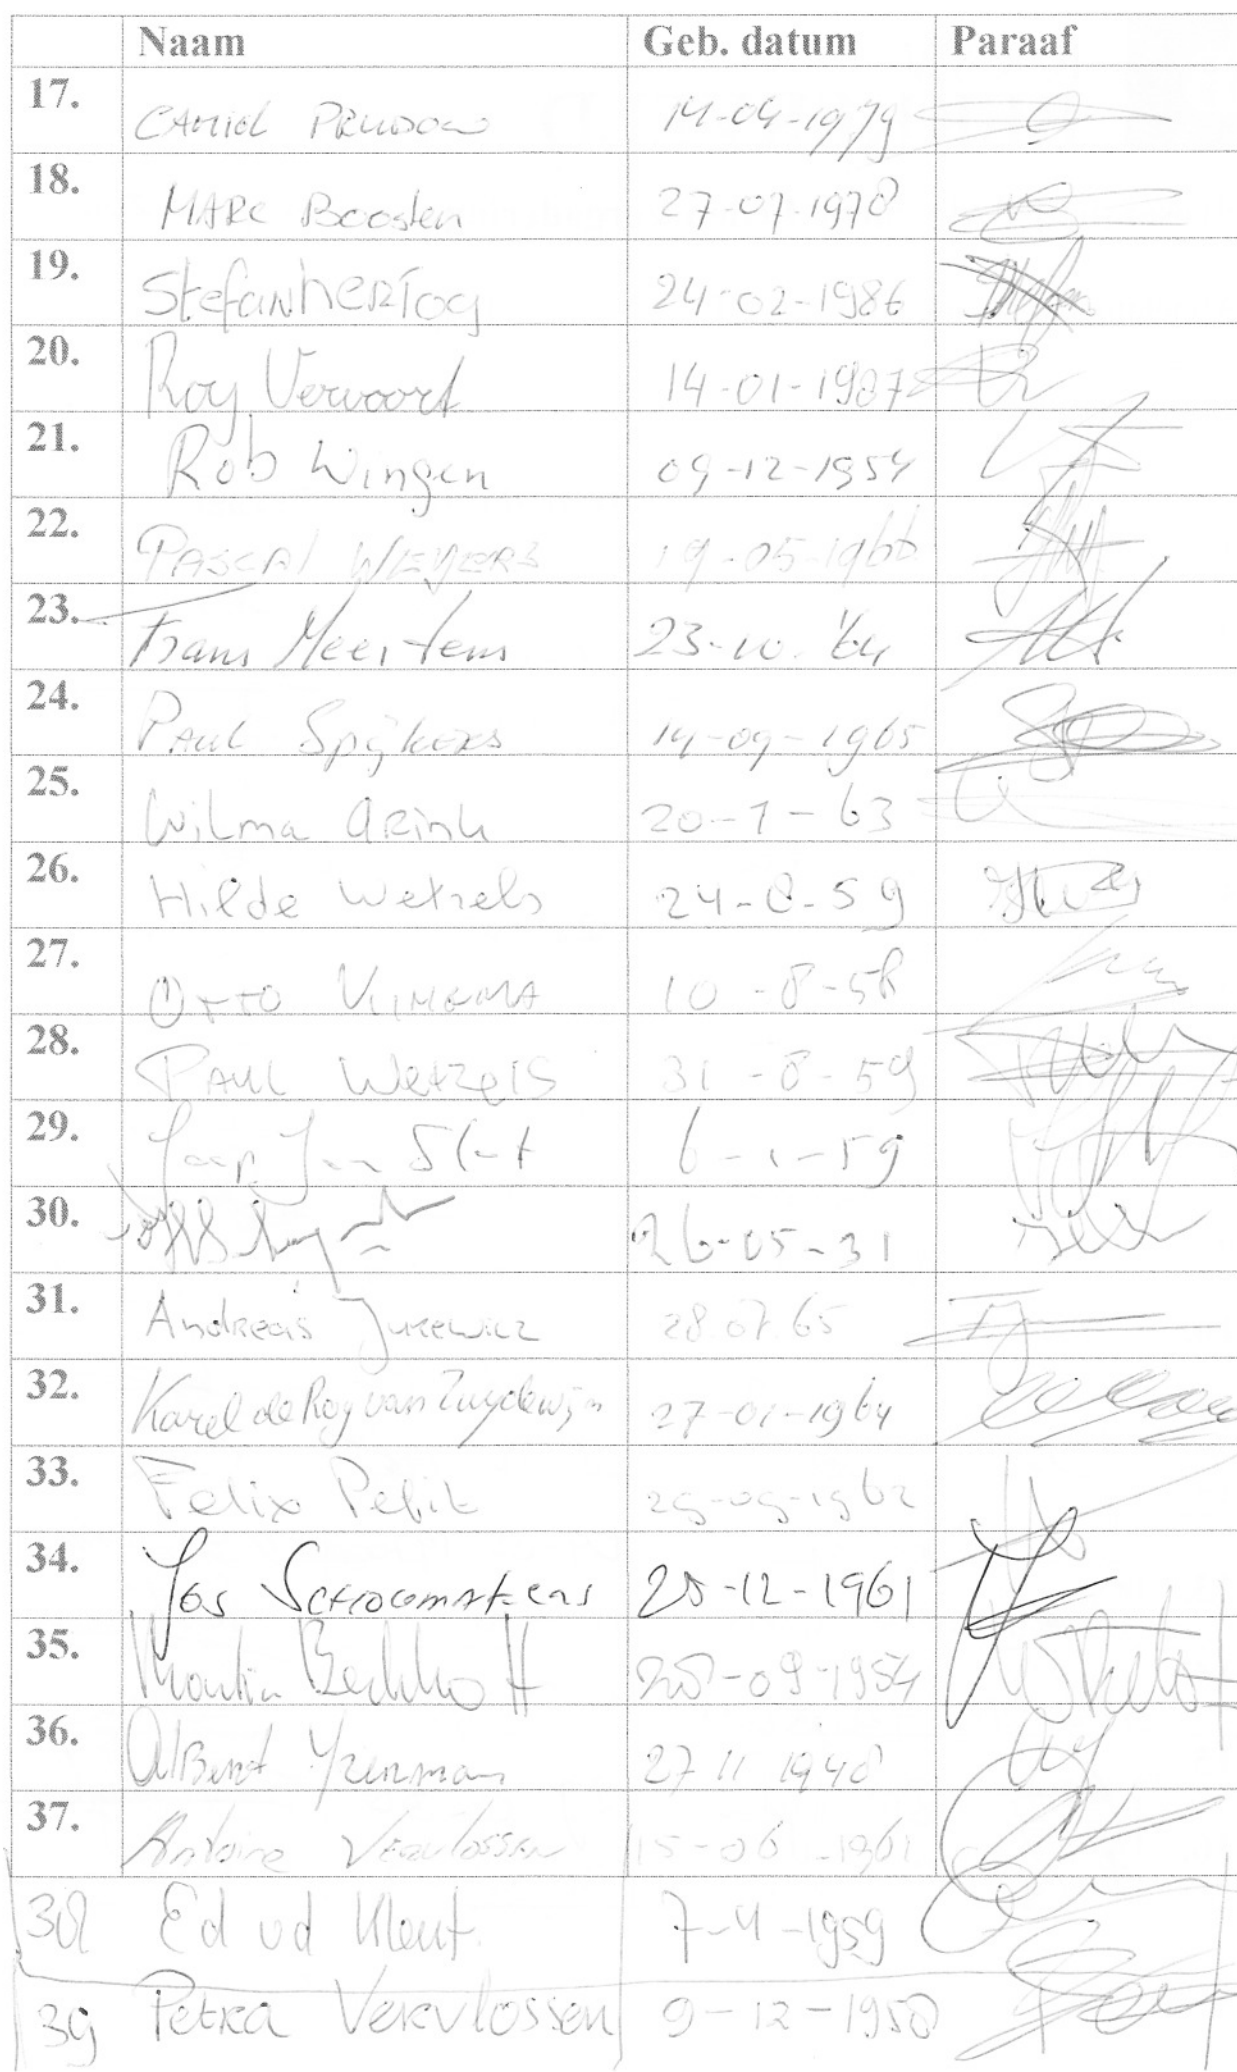 Naam Geb. datum Paraaf
17. CAMIEL PRUDON 14-04-1979
18. MARC Boosten 27-07-1978
19. Stefan herTog 24-02-1986
20. Roy Vervoort 14-01-1987
21. Rob Wingen 09-12-1954
22. PASCAL WEYERS 19-05-1966
23. Frans Meertens 23-10-'64
24. PAUL Spijkers 14-09-1965
25. Wilma arink 20-7-63
26. Hilde Wetzels 24-8-59
27. OTTO 10-8-58
28. PAUL Wetzels 31-8-59
29. Jaap Jan Slot 6-1-59
30. 26-05-31
31. Andreas Jurewicz 28.07.65
32. Karel de Roy van Zuydewijn 27-01-1964
33. Felix Petit 29-09-1962
34. Jos 28-12-1961
35. Beckhoff 28-09-1954
36. Albert Yzerman 27 11 1948
37. Antoine Vervlossen 15-06-1961
38 Ed vd Kleut 7-4-1959
39 Petra Vervlossen 9-12-1958